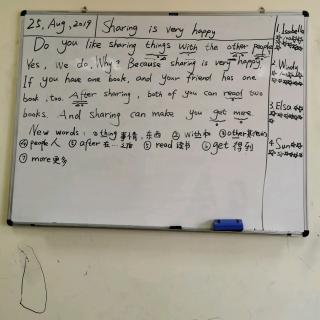 25, Aug, 2019 Sharing is very happy
Do you like sharing things with the other people
Yes, we do. Why? Because sharing is very happy.
If you have one book, and your friend has one
book, too. After sharing, both of you can read two
books. And sharing can make you get more
New words: ① thing 事情, 东西 ② with 和 ③ other 其他的
④ people 人 ⑤ after 在…之后 ⑥ read 读书 ⑥ get 得到
⑦ more 更多
1. Isabella
2. Windy
3. Elsa
4. Sun